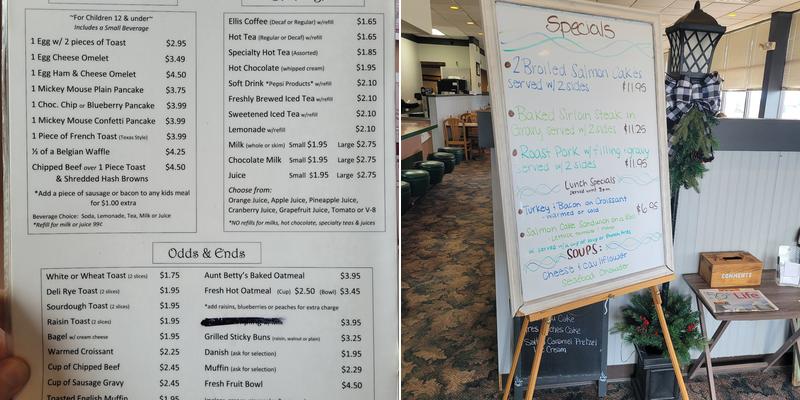 ~For Children 12 & under~
Includes a Small Beverage
1 Egg w/ 2 pieces of Toast $2.95
1 Egg Cheese Omelet $3.49
1 Egg Ham & Cheese Omelet $4.50
1 Mickey Mouse Plain Pancake $3.75
1 Choc. Chip or Blueberry Pancake $3.99
1 Mickey Mouse Confetti Pancake $3.99
1 Piece of French Toast (Texas Style) $3.99
½ of a Belgian Waffle $4.25
Chipped Beef over 1 Piece Toast $4.50
& Shredded Hash Browns
*Add a piece of sausage or bacon to any kids meal
for $1.00 extra
Beverage Choice: Soda, Lemonade, Tea, Milk or Juice
*Refill for milk or juice 99¢
Ellis Coffee (Decaf or Regular) w/refill $1.65
Hot Tea (Regular or Decaf) w/refill $1.65
Specialty Hot Tea (Assorted) $1.85
Hot Chocolate (whipped cream) $1.95
Soft Drink *Pepsi Products* w/refill $2.10
Freshly Brewed Iced Tea w/refill $2.10
Sweetened Iced Tea w/refill $2.10
Lemonade w/refill $2.10
Milk (whole or skim) Small $1.95 Large $2.75
Chocolate Milk Small $1.95 Large $2.75
Juice Small $1.95 Large $2.75
Choose from:
Orange Juice, Apple Juice, Pineapple Juice,
Cranberry Juice, Grapefruit Juice, Tomato or V-8
*NO refills for milks, hot chocolate, specialty teas & juices
Odds & Ends
White or Wheat Toast (2 slices) $1.75
Deli Rye Toast (2 slices) $1.95
Sourdough Toast (2 slices) $1.95
Raisin Toast (2 slices) $1.95
Bagel w/ cream cheese $1.95
Warmed Croissant $2.25
Cup of Chipped Beef $2.45
Cup of Sausage Gravy $2.45
Toasted English Muffin $1.95
Aunt Betty's Baked Oatmeal $3.95
Fresh Hot Oatmeal (Cup) $2.50 (Bowl) $3.45
*add raisins, blueberries or peaches for extra charge
$3.95
Grilled Sticky Buns (raisin, walnut or plain) $3.25
Danish (ask for selection) $1.95
Muffin (ask for selection) $2.29
Fresh Fruit Bowl $4.50
Specials
2 Broiled Salmon Cakes
served w/ 2 sides $11.95
Baked Sirloin Steak in
Gravy served w/ 2 sides $11.25
Roast Pork w/ filling & gravy
served w/ 2 sides $11.95
Lunch Specials
Turkey & Bacon on Croissant
warmed or cold $6.95
Salmon Cake Sandwich on a Roll
SOUPS:
Cheese & Cauliflower
Seafood Chowder
Cake
Cake
Caramel Pretzel
Ice Cream
COMMENTS
Life